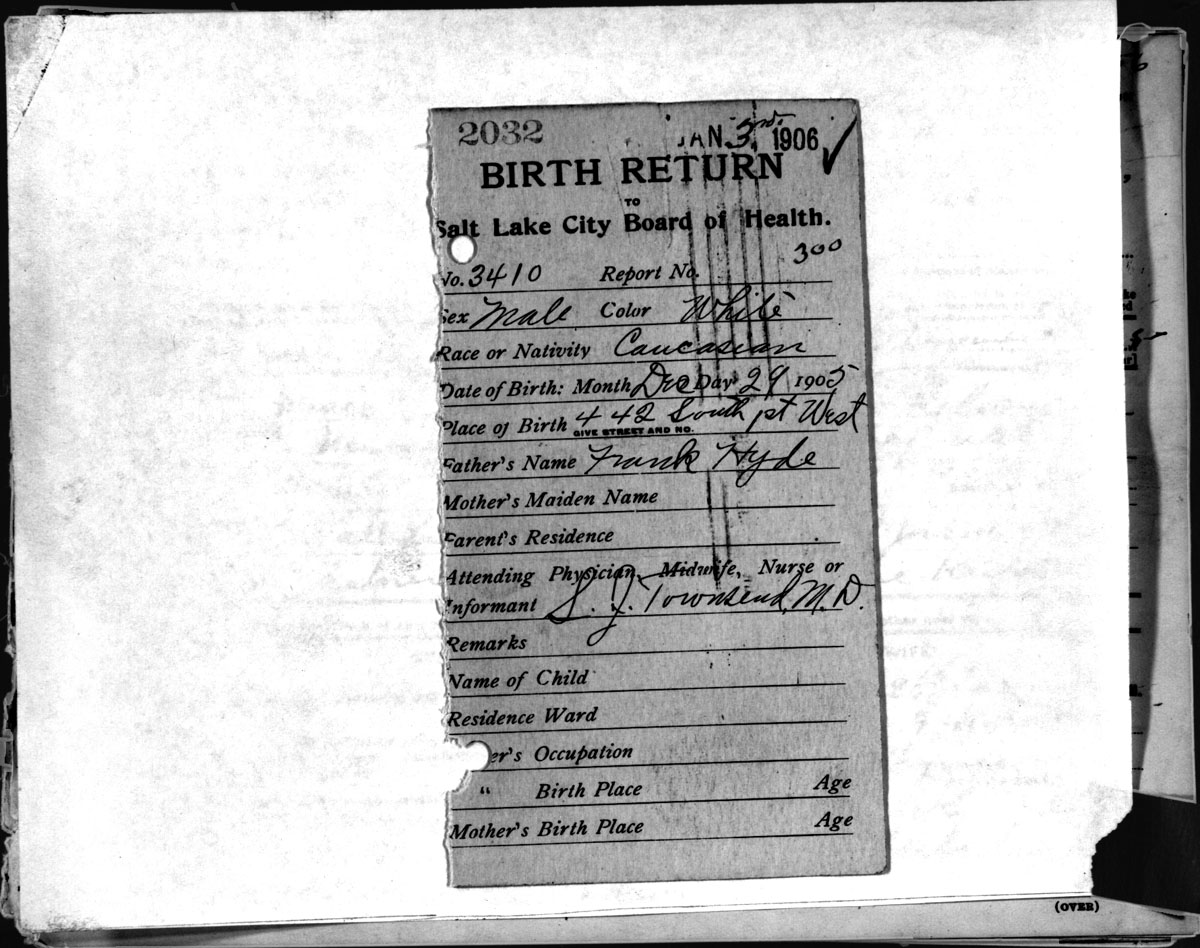 2032 JAN 3rd. 1906
BIRTH RETURN
TO
Salt Lake City Board of Health.
300
No. 3410 Report No.
Sex Male Color White
Race or Nativity Caucasian
Date of Birth: Month Dec Day 29 1905
Place of Birth 442 South 1st West
GIVE STREET AND NO.
Father's Name Frank Hyde
Mother's Maiden Name
Parent's Residence
Attending Physician, Midwife, Nurse or
Informant S. J. Townsend, M.D.
Remarks
Name of Child
Residence Ward
er's Occupation
" Birth Place Age
Mother's Birth Place Age
(OVER)